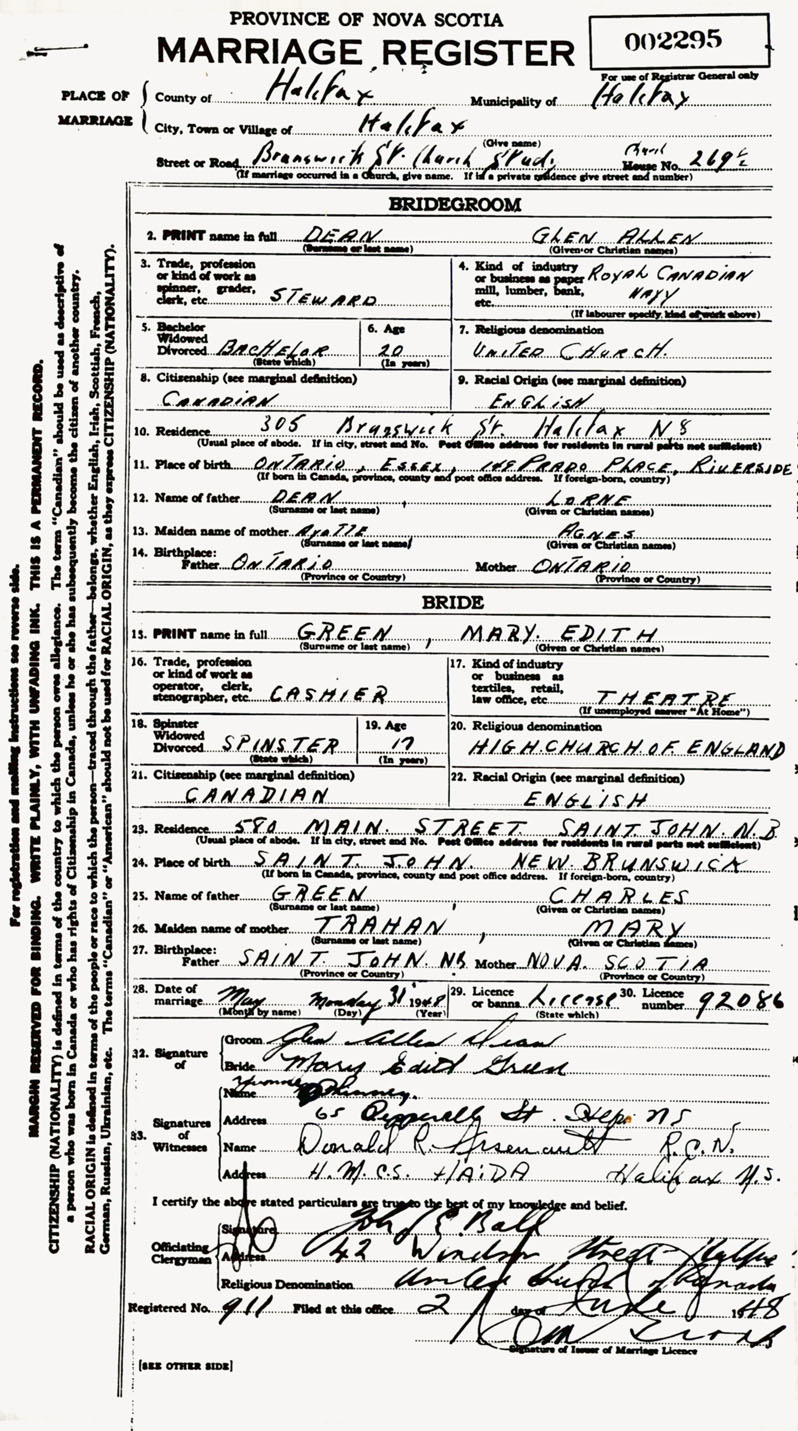 PROVINCE OF NOVA SCOTIA
MARRIAGE REGISTER
002295
For use of Registrar General only
PLACE OF MARRIAGE
County of Halifax Municipality of Halifax
City, Town or Village of Halifax
(Give name)
Street or Road Brunswick St. Church Study Church House No. 269½
(If marriage occurred in a Church, give name. If in a private residence give street and number)
BRIDEGROOM
2. PRINT name in full DEAN GLEN ALLEN
(Surname or last name) (Given or Christian names)
3. Trade, profession or kind of work as spinner, grader, clerk, etc. STEWARD
4. Kind of industry or business as paper mill, lumber, bank, etc. ROYAL CANADIAN NAVY
(If labourer specify kind of work above)
5. Bachelor Widowed Divorced BACHELOR
(State which)
6. Age 20
(In years)
7. Religious denomination
UNITED CHURCH.
8. Citizenship (see marginal definition)
CANADIAN
9. Racial Origin (see marginal definition)
ENGLISH
10. Residence 305 Brunswick St. Halifax NS
(Usual place of abode. If in city, street and No. Post Office address for residents in rural parts not sufficient)
11. Place of birth ONTARIO, ESSEX, PRADO PLACE, RIVERSIDE
(If born in Canada, province, county and post office address. If foreign-born, country)
12. Name of father DEAN, LORNE
(Surname or last name) (Given or Christian names)
13. Maiden name of mother Ayotte AGNES
(Surname or last name) (Given or Christian names)
14. Birthplace:
Father ONTARIO Mother ONTARIO
(Province or Country) (Province or Country)
BRIDE
15. PRINT name in full GREEN, MARY. EDITH
(Surname or last name) (Given or Christian names)
16. Trade, profession or kind of work as operator, clerk, stenographer, etc. CASHIER
17. Kind of industry or business as textiles, retail, law office, etc THEATRE
(If unemployed answer "At Home")
18. Spinster Widowed Divorced SPINSTER
(State which)
19. Age 17
(In years)
20. Religious denomination
HIGH. CHURCH OF ENGLAND
21. Citizenship (see marginal definition)
CANADIAN
22. Racial Origin (see marginal definition)
ENGLISH
23. Residence 580 MAIN. STREET. SAINT JOHN. N.B
(Usual place of abode. If in city, street and No. Post Office address for residents in rural parts not sufficient)
24. Place of birth SAINT. JOHN. NEW. BRUNSWICK
(If born in Canada, province, county and post office address. If foreign-born, country)
25. Name of father GREEN, CHARLES
(Surname or last name) (Given or Christian names)
26. Maiden name of mother TRAHAN, MARY
(Surname or last name) (Given or Christian names)
27. Birthplace:
Father SAINT. JOHN. NB Mother NOVA. SCOTIA
(Province or Country) (Province or Country)
28. Date of marriage May Monday 31 1948
(Month by name) (Day) (Year)
29. Licence or banns License
(State which)
30. Licence number 92086
32. Signature of
Groom Glen Allen Dean
Bride Mary Edith Green
33. Signatures of Witnesses
Name Yvonne
Address 65 Pepperell St. Hfx. NS
Name Donald R. Arsenault R.C.N.
Address H.M.C.S. HAIDA Halifax N.S.
I certify the above stated particulars are true to the best of my knowledge and belief.
Officiating Clergyman
Signature John E. Ball
Address 42 Windsor Street Halifax
Religious Denomination United Church of Canada
Registered No. 911 Filed at this office 2 day of June 1948
Signature of Issuer of Marriage Licence
[SEE OTHER SIDE]
For registration and mailing instructions see reverse side.
MARGIN RESERVED FOR BINDING. WRITE PLAINLY, WITH UNFADING INK. THIS IS A PERMANENT RECORD.
CITIZENSHIP (NATIONALITY) is defined in terms of the country to which the person owes allegiance. The term "Canadian" should be used as descriptive of
a person who was born in Canada or who has rights of Citizenship in Canada, unless he or she has subsequently become the citizen of another country.
RACIAL ORIGIN is defined in terms of the people or race to which the person—traced through the father—belongs, whether English, Irish, Scottish, French,
German, Russian, Ukrainian, etc. The terms "Canadian" or "American" should not be used for RACIAL ORIGIN, as they express CITIZENSHIP (NATIONALITY).